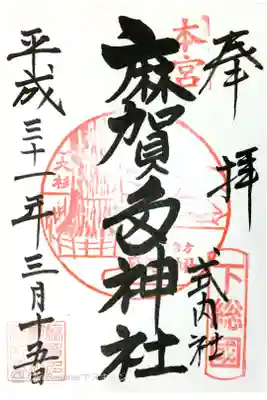 奉拝
式内社
下総国
本宮
麻賀多神社
大杉
平成三十一年三月十五日